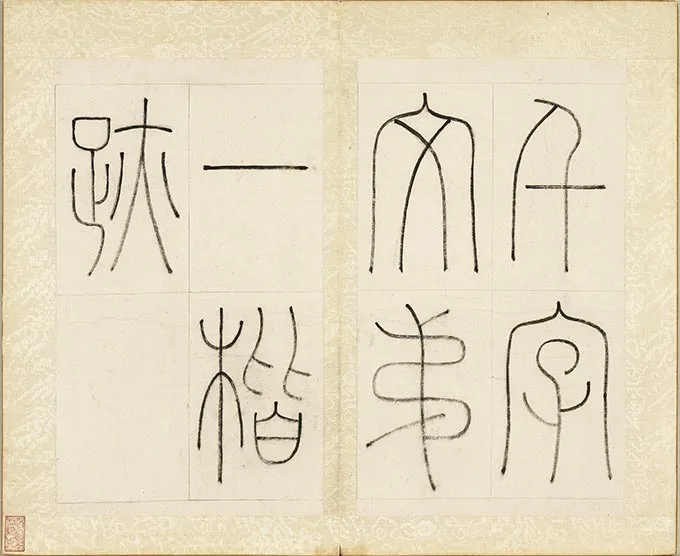 千字
文弟
一楷
跡